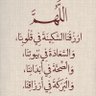 اللَّهُمَّ
ارزقنا السَّكِينَة فِي قُلُوبِنَا،
وَالسَّعَادَة فِي بُيُوتِنَا،
وَالصِّحَّة فِي أَبْدَانِنَا،
وَالبَرَكَة فِي أَرْزَاقِنَا.